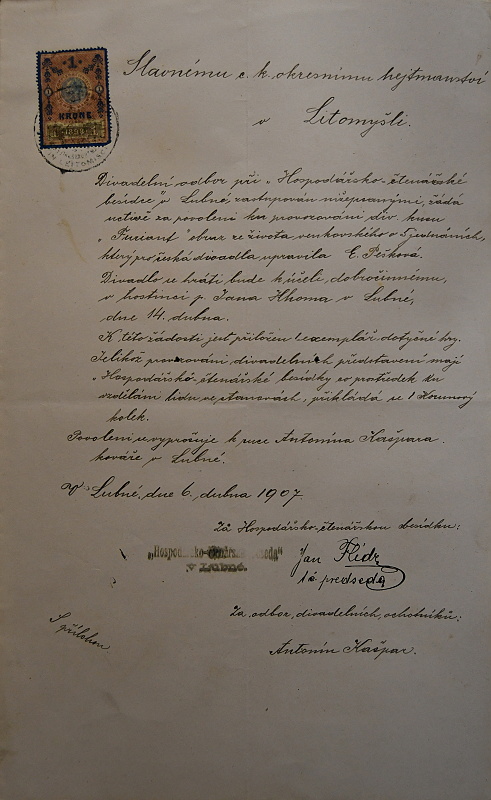 1
KRONE
1898
Slavnému c. k. okresnímu hejtmanství
v Litomyšli.
Divadelní odbor při „Hospodářsko-čtenářské
besídce" v Lubné, zastupován nížepsanými, žádá
uctivě za povolení ku provozování div. kusu
„Furiant" obraz ze života venkovského o 5 jednáních,
který pro česká divadla upravila E. Pešková.
Divadlo se hráti bude k účeli dobročinnému,
v hostinci p. Jana v Lubné,
dne 14. dubna.
K této žádosti jest přiložen 1 exemplář dotyčné hry.
Jelikož provozování divadelních představení mají
„Hospodářsko-čtenářské besídky co prostředek ku
vzdělání lidu ve stanovách, přikládá se 1 Korunový
kolek.
Povolení se vyprošuje k ruce Antonína Kašpara
kováře v Lubné.
V Lubné, dne 6. dubna 1907
Za Hospodářsko-čtenářskou besídku:
„Hospodářsko-čtenářská beseda"
v Lubné.
Jan Flídr
t. č. předseda
Za odbor divadelních ochotníků:
S přílohou
Antonín Kašpar.